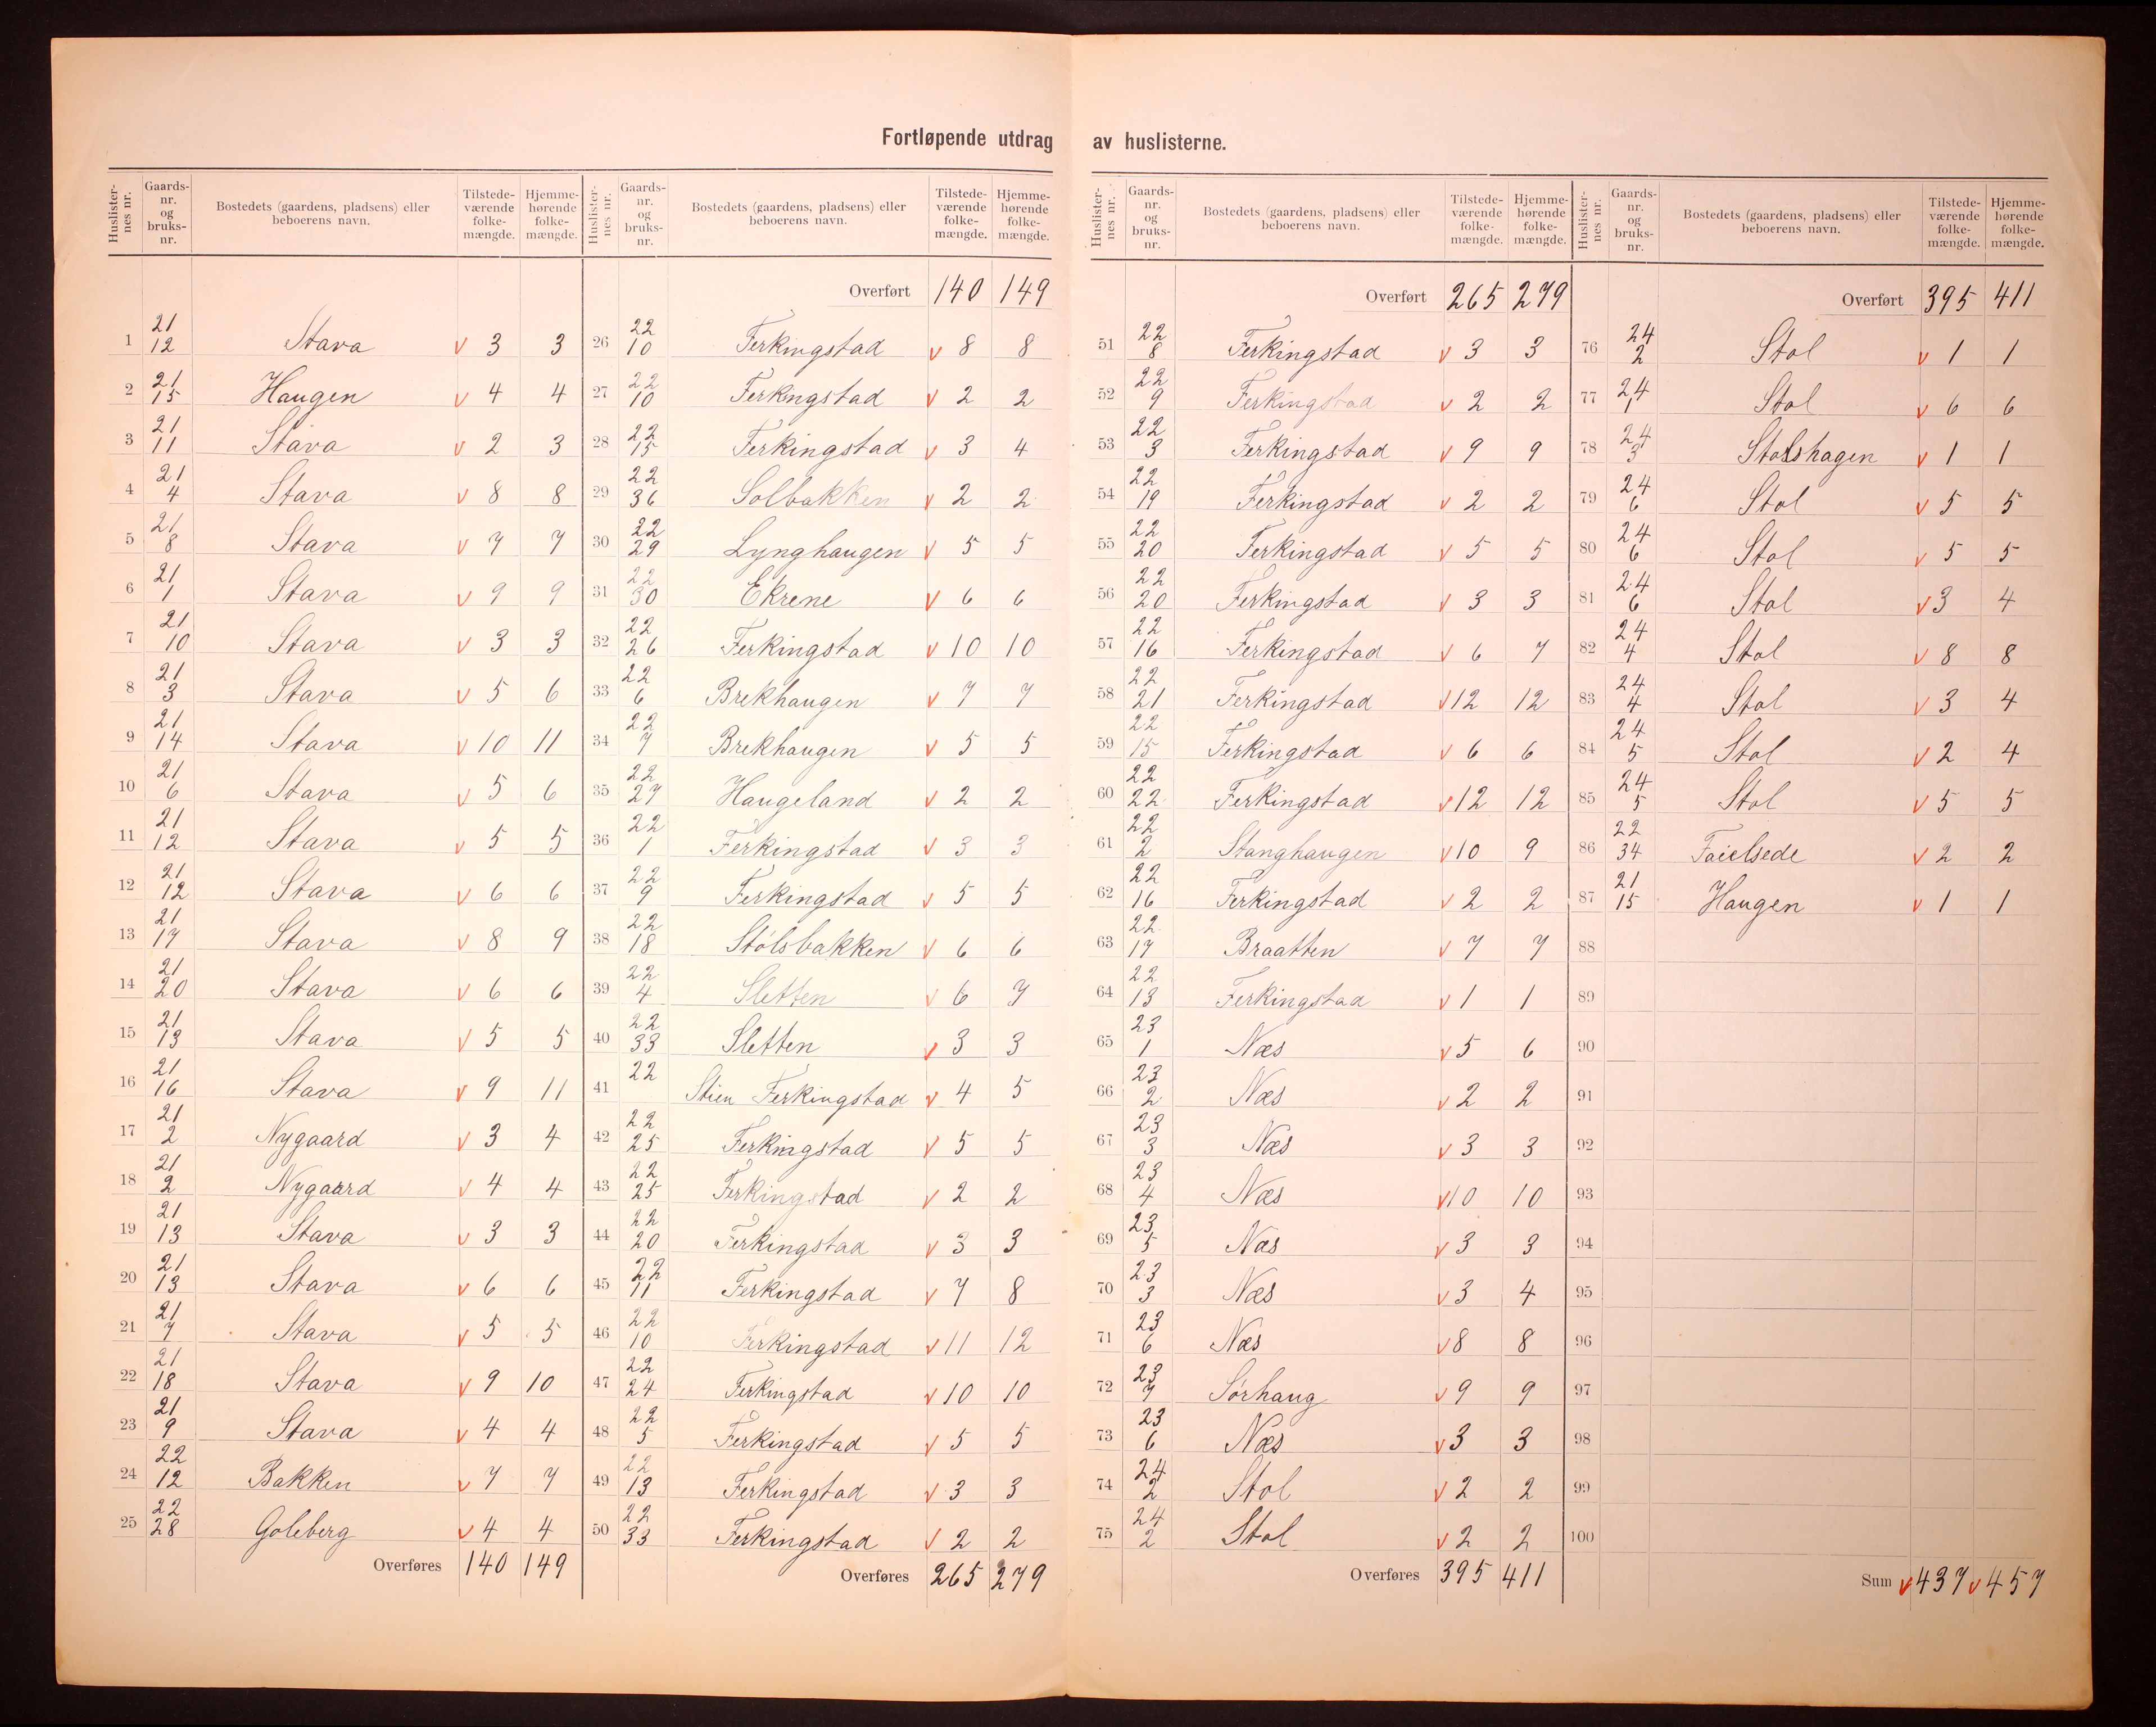 Fortløpende utdrag av huslisterne.
Huslisternes nr. | Gaards-nr. og bruks-nr. | Bostedets (gaardens, pladsens) eller beboerens navn. | Tilstede-værende folke-mængde. | Hjemme-hørende folke-mængde.
1 21/12 Stava v 3 3
2 21/15 Haugen v 4 4
3 21/11 Stava v 2 3
4 21/4 Stava v 8 8
5 21/8 Stava v 7 7
6 21/1 Stava v 9 9
7 21/10 Stava v 3 3
8 21/3 Stava v 5 6
9 21/14 Stava v 10 11
10 21/6 Stava v 5 6
11 21/12 Stava v 5 5
12 21/12 Stava v 6 6
13 21/17 Stava v 8 9
14 21/20 Stava v 6 6
15 21/13 Stava v 5 5
16 21/16 Stava v 9 11
17 21/2 Nygaard v 3 4
18 21/2 Nygaard v 4 4
19 21/13 Stava v 3 3
20 21/13 Stava v 6 6
21 21/7 Stava v 5 5
22 21/18 Stava v 9 10
23 21/9 Stava v 4 4
24 22/12 Bakken v 7 7
25 22/28 Goleberg v 4 4
Overføres 140 149
Huslisternes nr. | Gaards-nr. og bruks-nr. | Bostedets (gaardens, pladsens) eller beboerens navn. | Tilstede-værende folke-mængde. | Hjemme-hørende folke-mængde.
Overført 140 149
26 22/10 Ferkingstad v 8 8
27 22/10 Ferkingstad v 2 2
28 22/15 Ferkingstad v 3 4
29 22/36 Solbakken v 2 2
30 22/29 Lynghaugen v 5 5
31 22/30 Ekrene v 6 6
32 22/26 Ferkingstad v 10 10
33 22/6 Brekhaugen v 7 7
34 22/7 Brekhaugen v 5 5
35 22/27 Haugeland v 2 2
36 22/1 Ferkingstad v 3 3
37 22/9 Ferkingstad v 5 5
38 22/18 Stólsbakken v 6 6
39 22/4 Sletten v 6 7
40 22/33 Sletten v 3 3
41 22 Stien Ferkingstad v 4 5
42 22/25 Ferkingstad v 5 5
43 22/25 Ferkingstad v 2 2
44 22/20 Ferkingstad v 3 3
45 22/11 Ferkingstad v 7 8
46 22/10 Ferkingstad v 11 12
47 22/24 Ferkingstad v 10 10
48 22/5 Ferkingstad v 5 5
49 22/13 Ferkingstad v 3 3
50 22/33 Ferkingstad v 2 2
Overføres 265 279
Huslisternes nr. | Gaards-nr. og bruks-nr. | Bostedets (gaardens, pladsens) eller beboerens navn. | Tilstede-værende folke-mængde. | Hjemme-hørende folke-mængde.
Overført 265 279
51 22/8 Ferkingstad v 3 3
52 22/9 Ferkingstad v 2 2
53 22/3 Ferkingstad v 9 9
54 22/19 Ferkingstad v 2 2
55 22/20 Ferkingstad v 5 5
56 22/20 Ferkingstad v 3 3
57 22/16 Ferkingstad v 6 7
58 22/21 Ferkingstad v 12 12
59 22/15 Ferkingstad v 6 6
60 22/22 Ferkingstad v 12 12
61 22/2 Stanghaugen v 10 9
62 22/16 Ferkingstad v 2 2
63 22/17 Braatten v 7 7
64 22/13 Ferkingstad v 1 1
65 23/1 Næs v 5 6
66 23/2 Næs v 2 2
67 23/3 Næs v 3 3
68 23/4 Næs v 10 10
69 23/5 Næs v 3 3
70 23/3 Næs v 3 4
71 23/6 Næs v 8 8
72 23/7 Sórhaug v 9 9
73 23/6 Næs v 3 3
74 24/2 Stol v 2 2
75 24/2 Stol v 2 2
Overføres 395 411
Huslisternes nr. | Gaards-nr. og bruks-nr. | Bostedets (gaardens, pladsens) eller beboerens navn. | Tilstede-værende folke-mængde. | Hjemme-hørende folke-mængde.
Overført 395 411
76 24/2 Stol v 1 1
77 24/1 Stol v 6 6
78 24/3 Stolshagen v 1 1
79 24/6 Stol v 5 5
80 24/6 Stol v 5 5
81 24/6 Stol v 3 4
82 24/4 Stol v 8 8
83 24/4 Stol v 3 4
84 24/5 Stol v 2 4
85 24/5 Stol v 5 5
86 22/34 v 2 2
87 21/15 Haugen v 1 1
88
89
90
91
92
93
94
95
96
97
98
99
100
Sum v 437 v 457